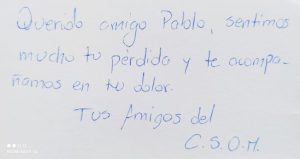 Querido amigo Pablo, sentimos
mucho tu pérdida y te acompa-
ñamos en tu dolor.
Tus Amigos del
C.S.O.H.